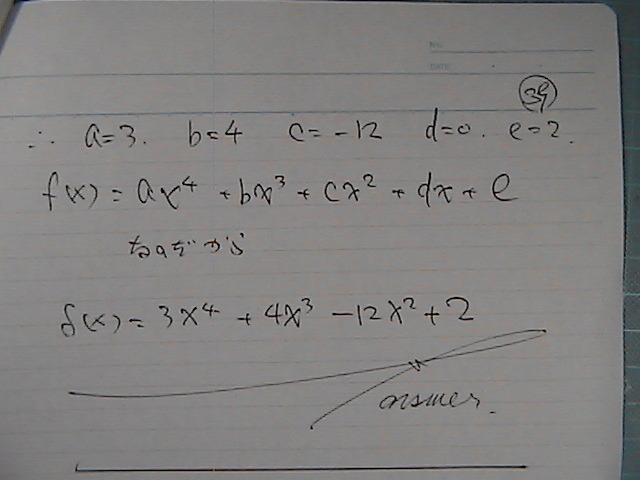 No.
DATE
39
∴ a=3. b=4 c=-12 d=0. e=2.
f(x)=ax⁴+bx³+cx²+dx+e
なのだから
f(x)=3x⁴+4x³-12x²+2
answer.